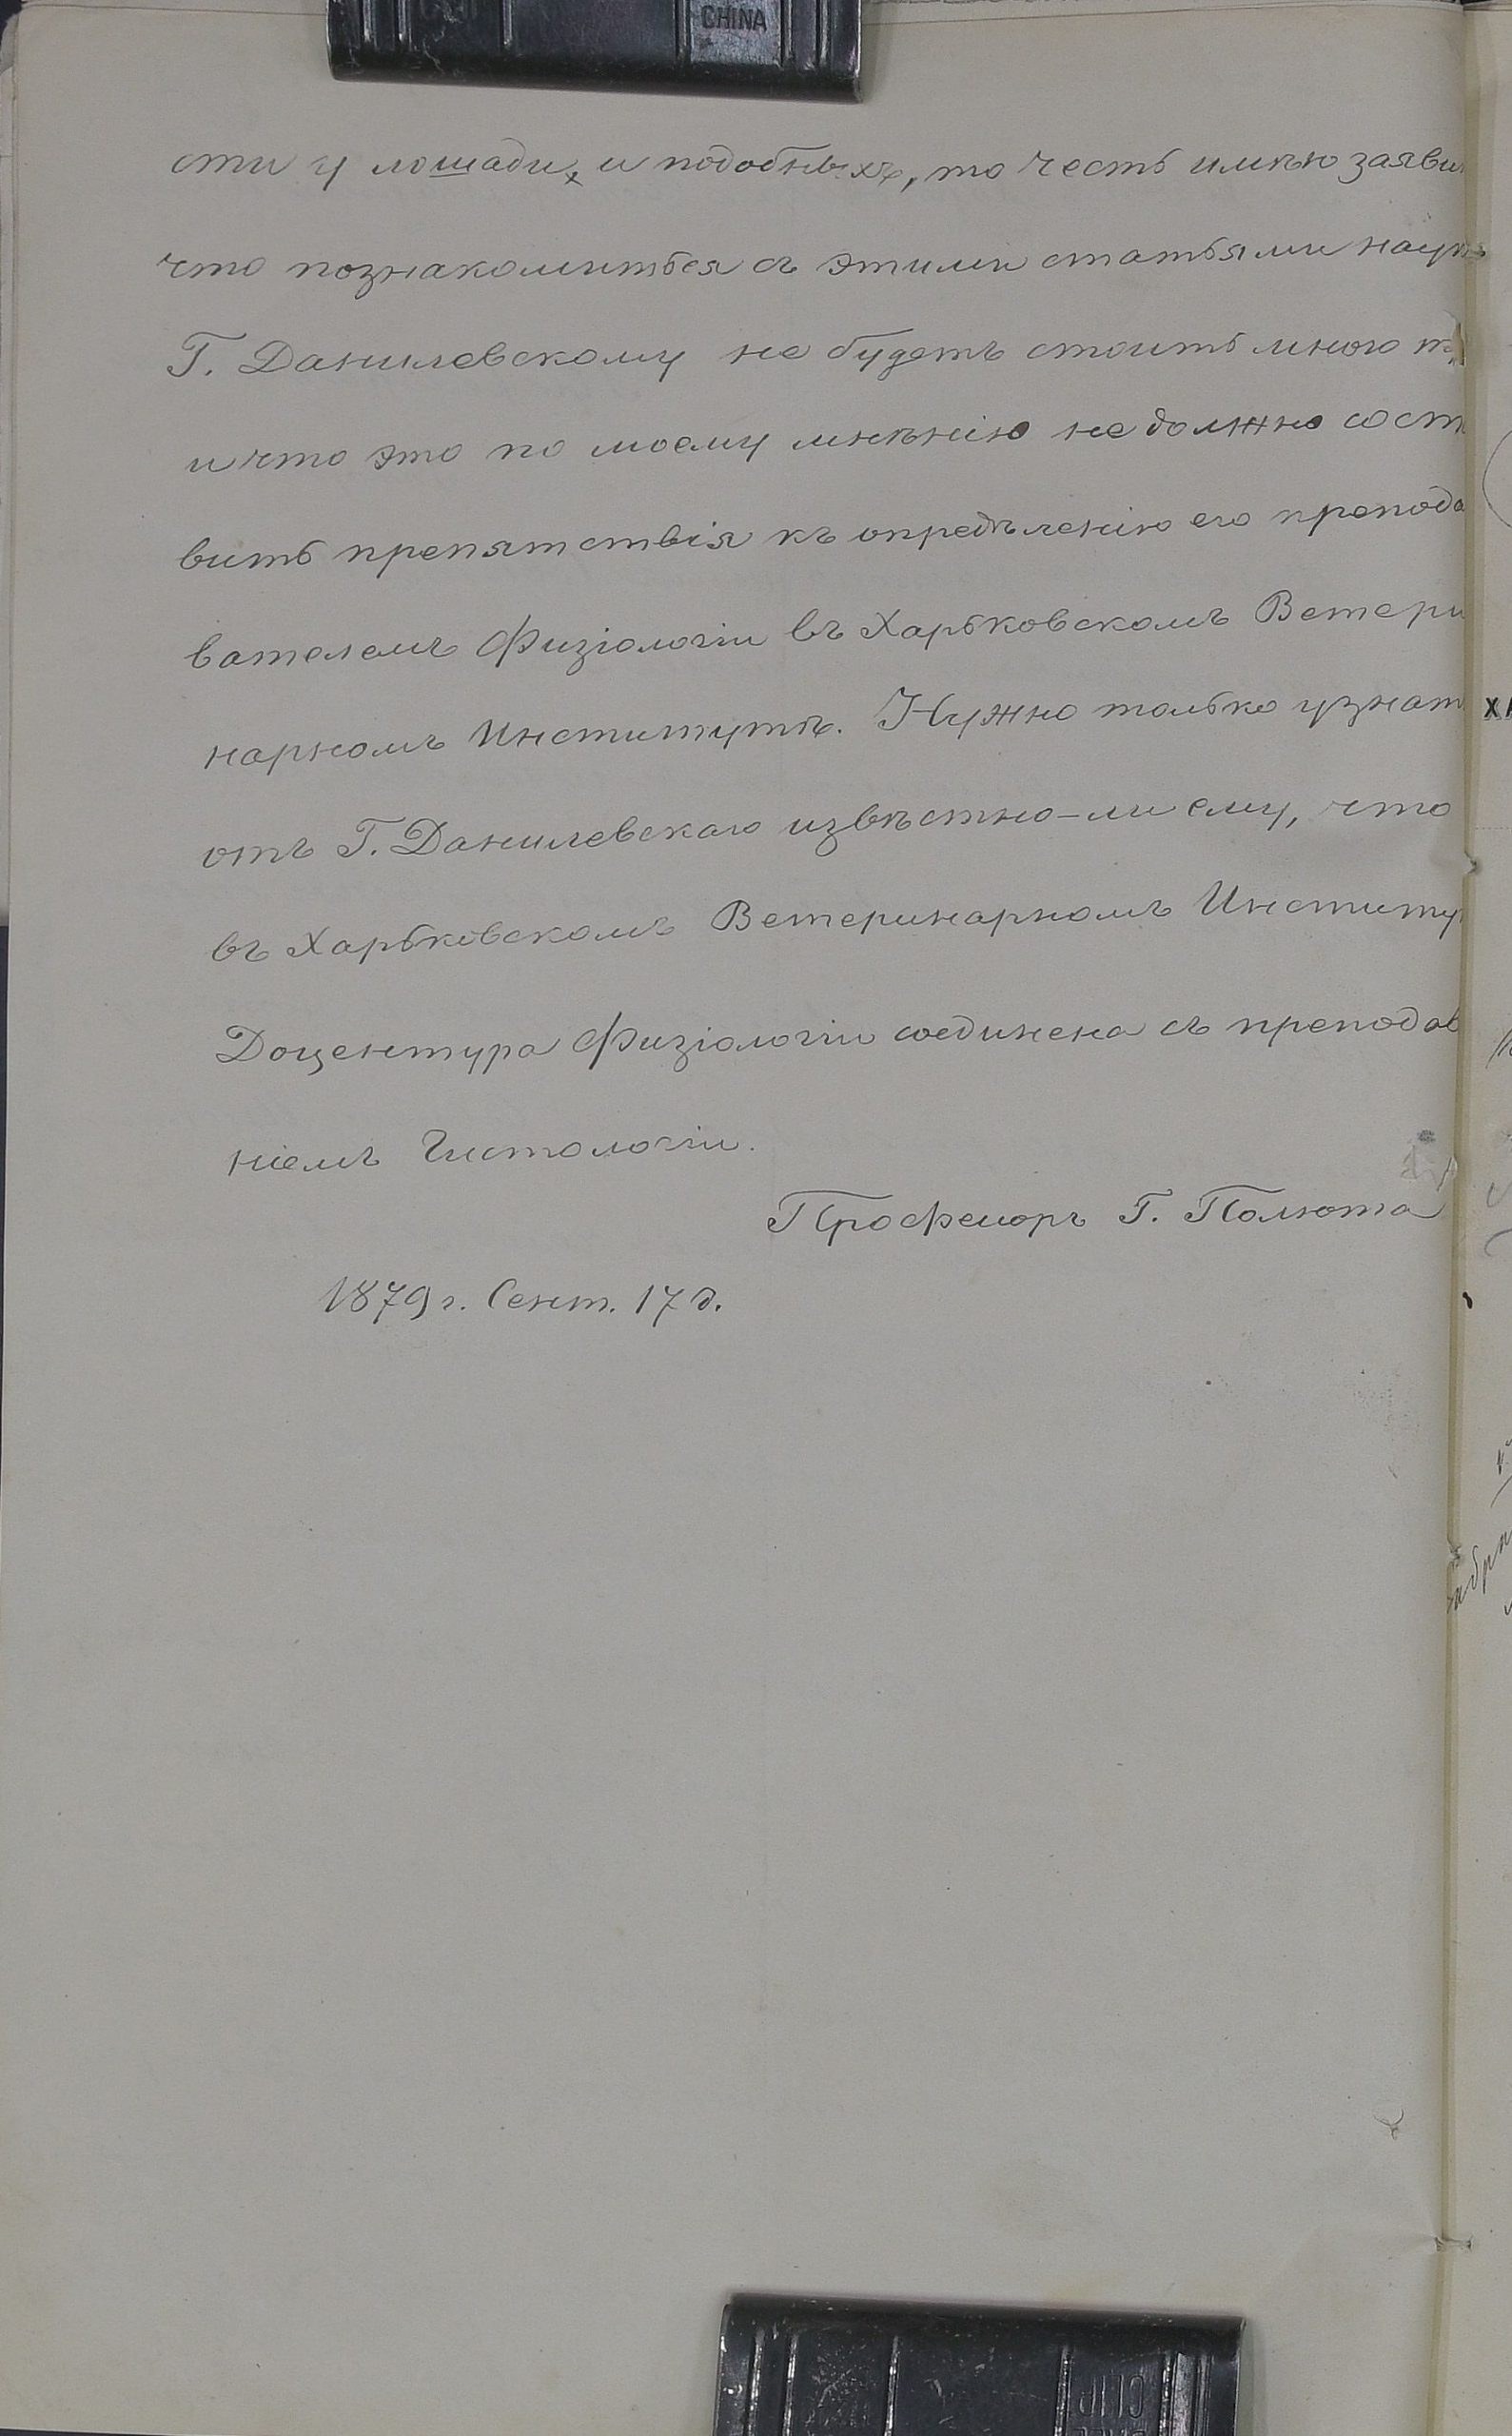 CHINA
сти у лошади, и подобныхъ, то честь имѣю заяви
что познакомиться съ этими статьями наук
Г. Данилевскому не будетъ стоить много
и что это по моему мнѣнію не должно сост
вить препятствія къ опредѣленію его препода
вателемъ Физіологіи въ Харьковскомъ Ветери
нарномъ Институтѣ. Нужно только узнат
отъ Г. Данилевскаго извѣстно-ли ему, что
въ Харьковскомъ Ветеринарномъ Институ
Доцентура Физіологіи соединена съ преподав
ніемъ Гистологіи.
Професоръ Г. Полюта
1879 г. Сент. 17 д.
CLIP